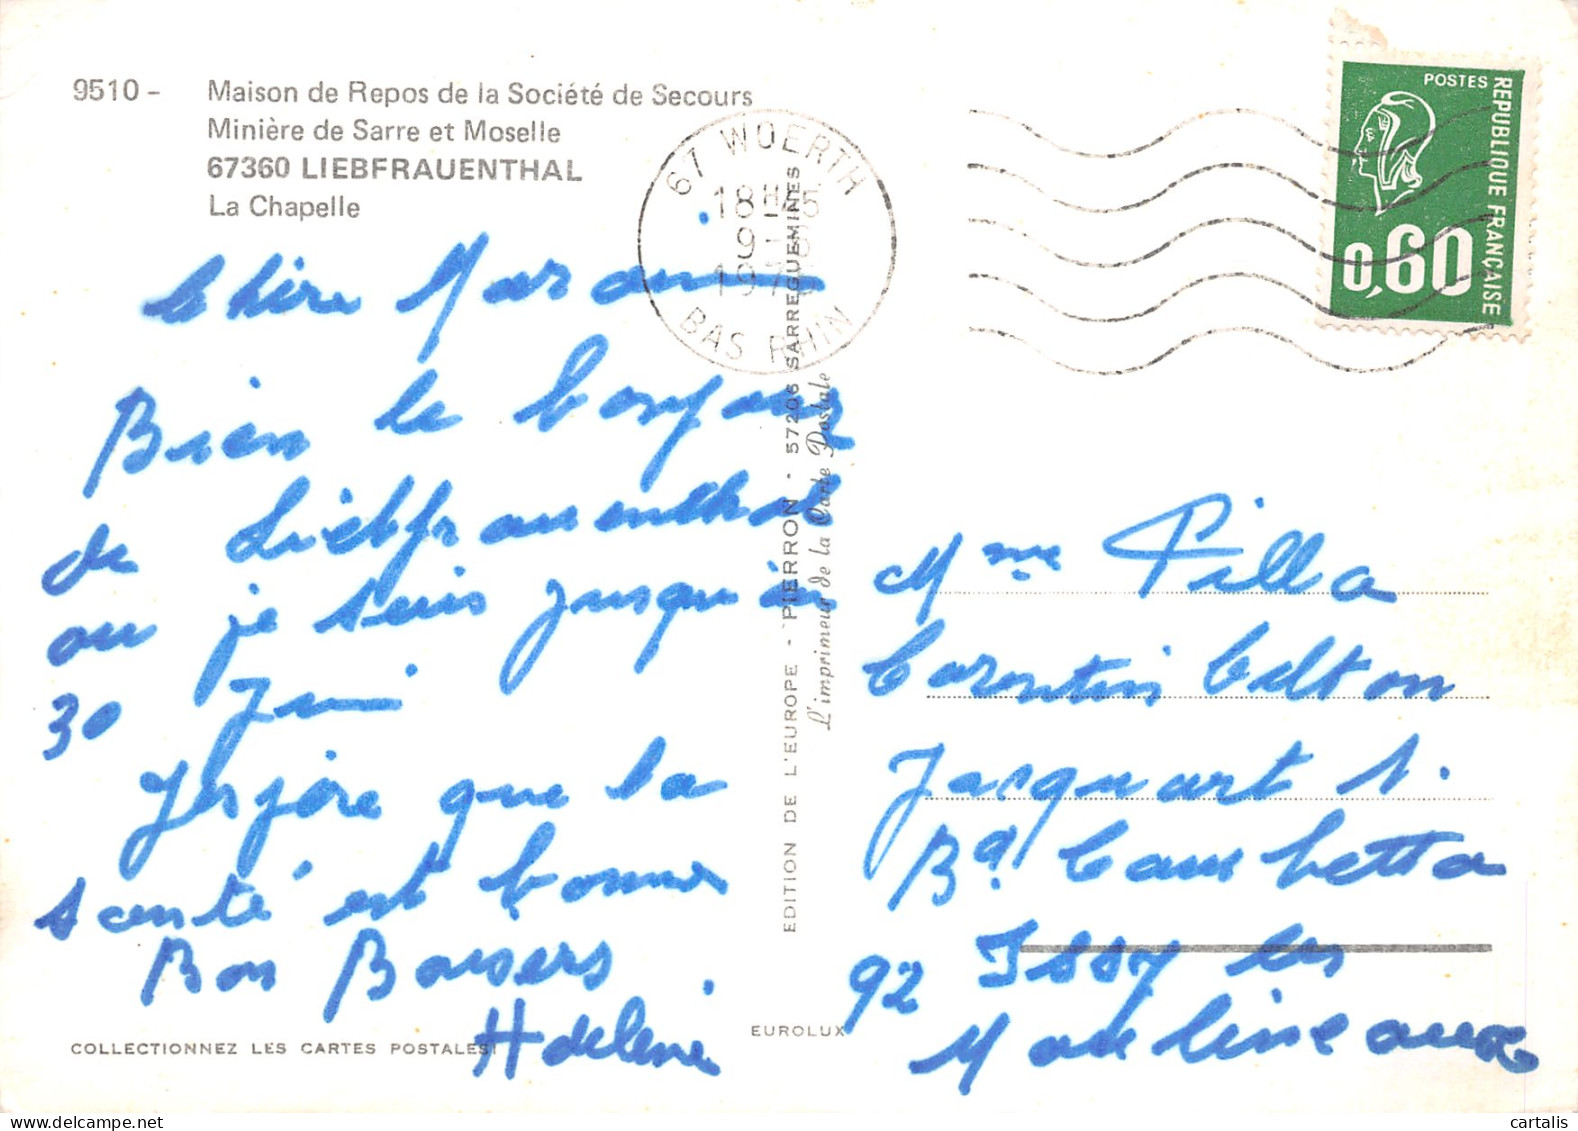 9510 - Maison de Repos de la Société de Secours
Minière de Sarre et Moselle
67360 LIEBFRAUENTHAL
La Chapelle
67 WOERTH
18H45
9
BAS RHIN
POSTES
REPUBLIQUE FRANÇAISE
0,60
Chère
Bien le bonjour
de Liebfrauenthal
ou je suis jusqu'au
30 Juin
J'espère que la
santé est bonne
Bon Baisers
Hélène
EDITION DE L'EUROPE - PIERRON - 57206 SARREGUEMINES
L'imprimeur de la Carte Postale
Mme Pilla
Corentin Celton
Jacquart 1.
Bd Gambetta
92 Issy les
Moulineaux
COLLECTIONNEZ LES CARTES POSTALES!
EUROLUX
cartalis